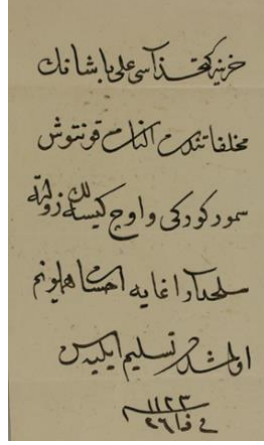 خزينه كتخداسى على پاشانك
مخلفاتندن النان قونتوش
سمور كوركى و اوچ كيسه لك
سلحدار اغايه احسان همايونم
اولمشدر تسليم ايليهسن
١١٢٣